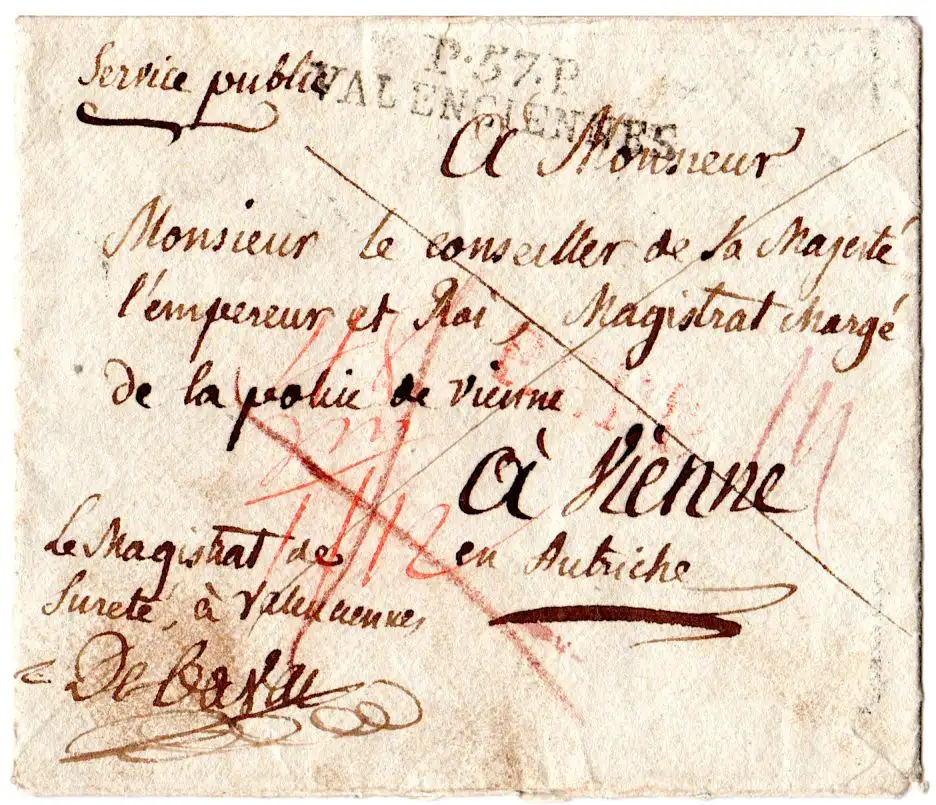 Service public
P.57.P
VALENCIENNES
A Monsieur
Monsieur le conseiller de Sa Majesté
l'empereur et Roi, Magistrat chargé
de la police de Vienne
à Vienne
en Autriche
Le Magistrat de
Sureté, à Valenciennes